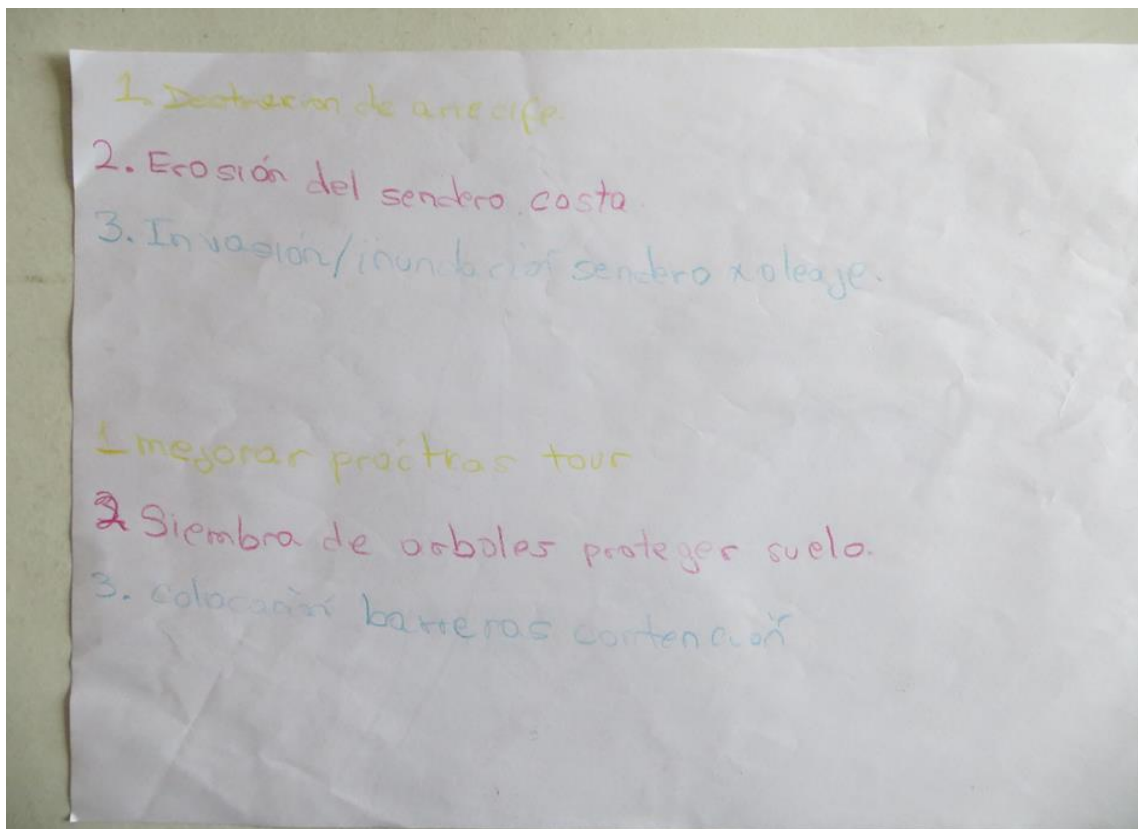 1. Destruccion de arrecife.
2. Erosión del sendero costa.
3. Invasión/inundación sendero x oleaje.
1 mejorar practicas tour
2 Siembra de arboles proteger suelo.
3. colocación barreras contención